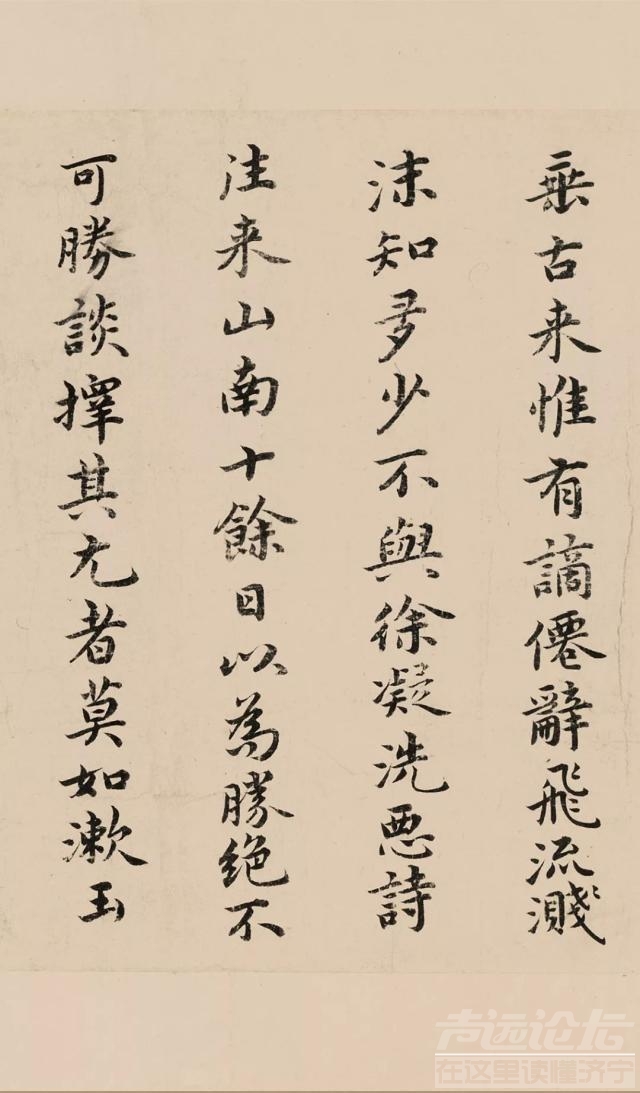 垂古来惟有謫僊辭飛流濺
沫知多少不與徐凝洗惡詩
往来山南十餘日以為勝絕不
可勝談擇其尤者莫如漱玉
声远论坛
在这里读懂济宁